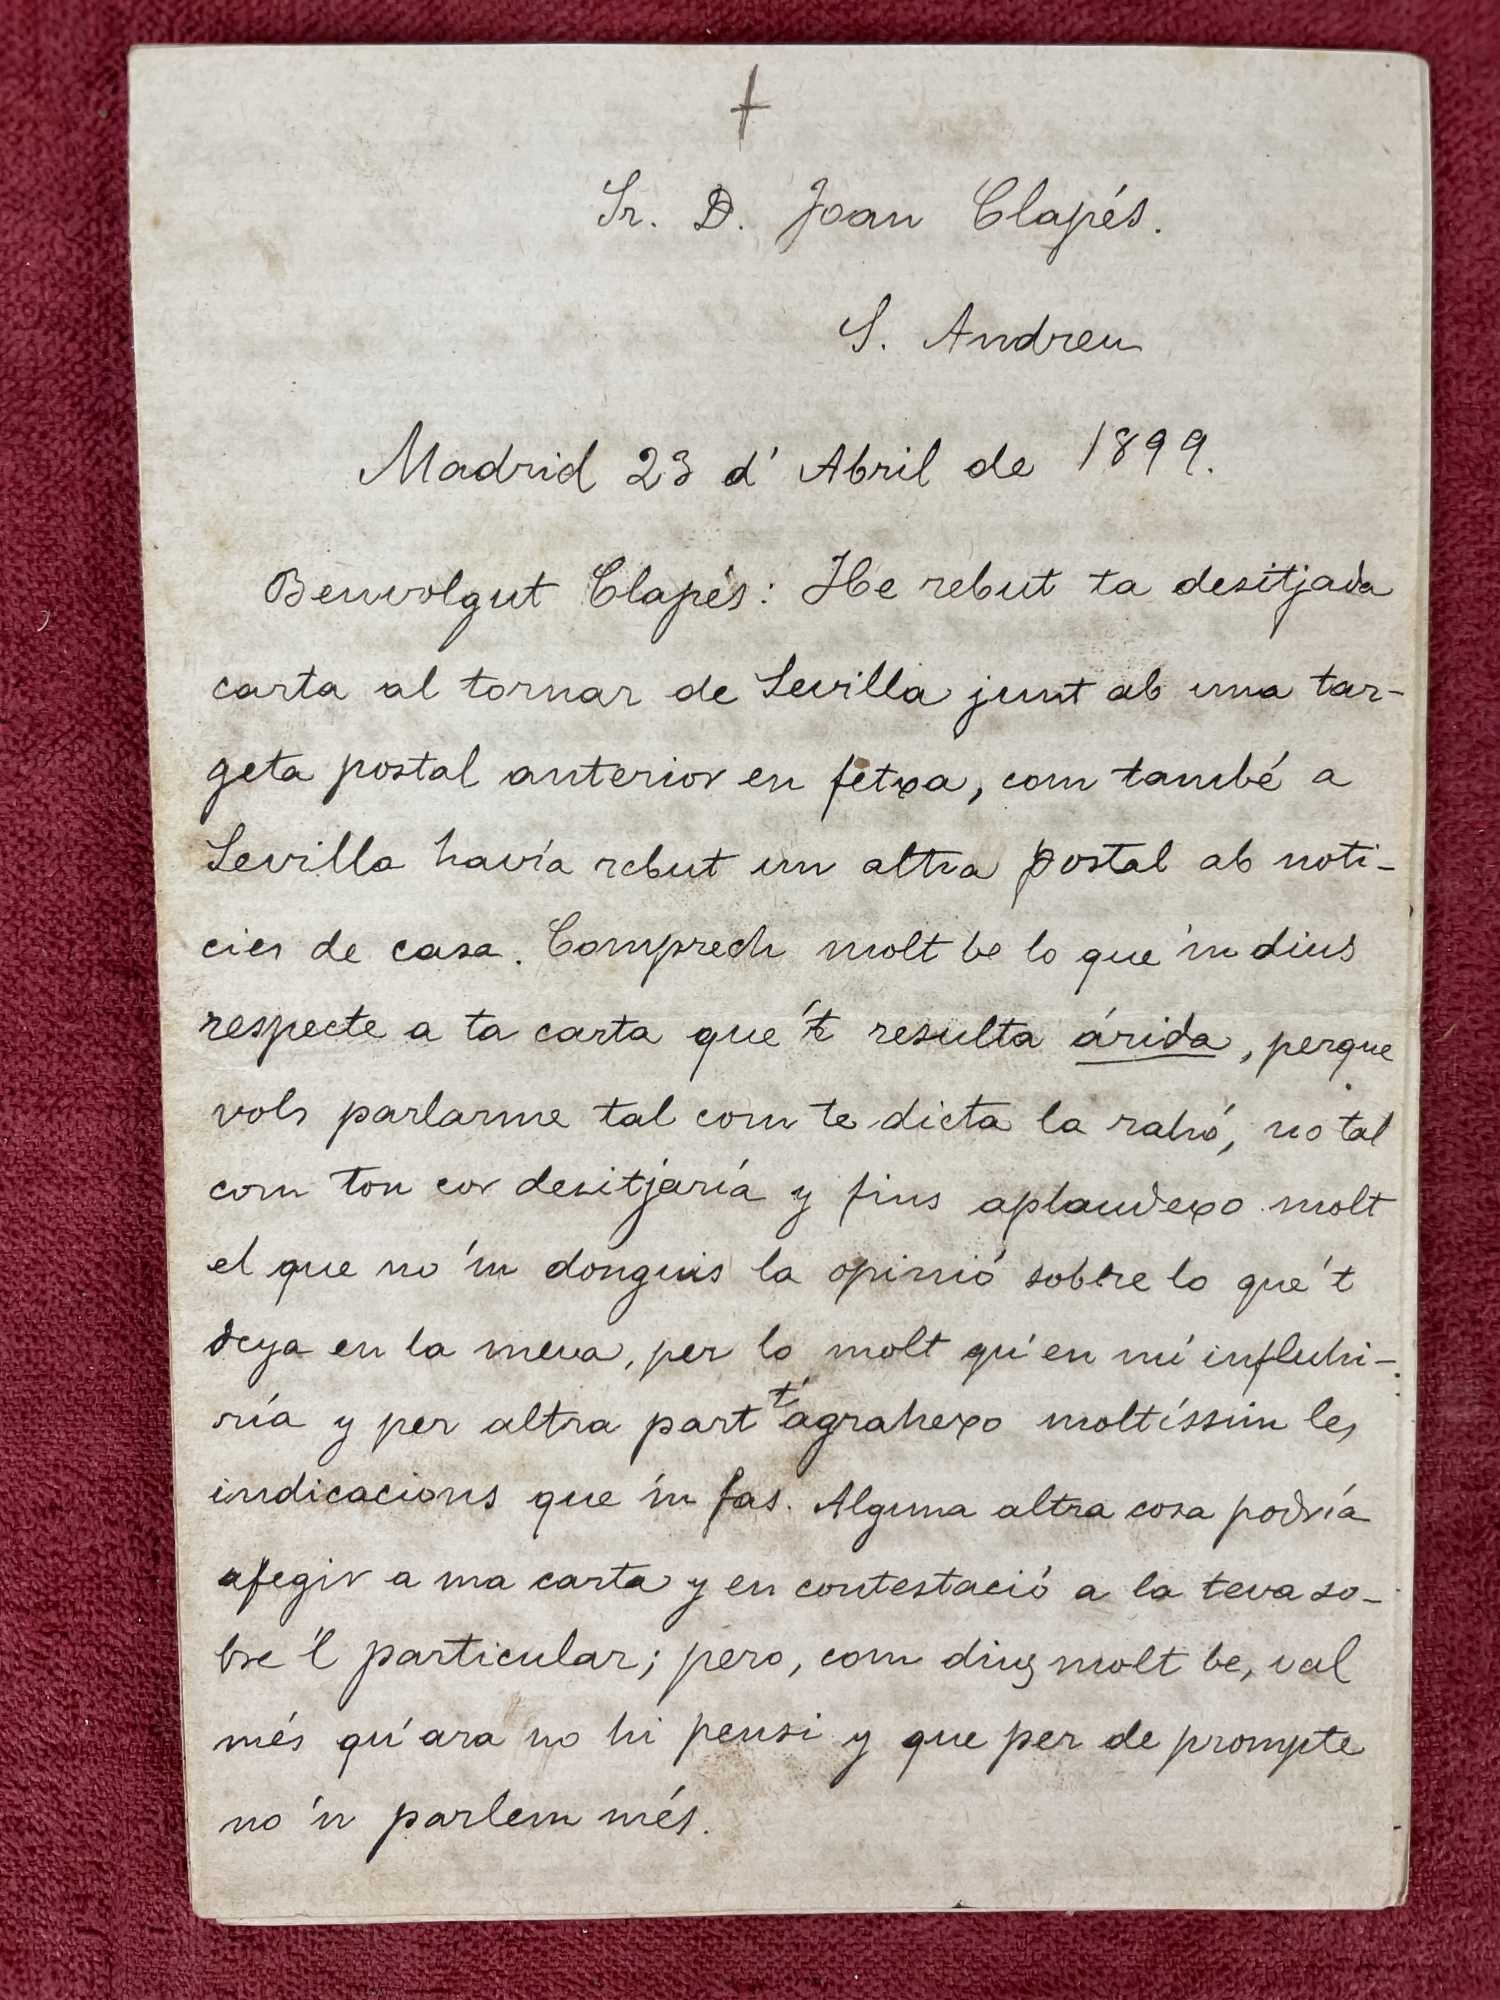 †
Sr. D. Joan Clapés.
S. Andreu
Madrid 23 d' Abril de 1899.
Benvolgut Clapés: He rebut ta desitjada
carta al tornar de Sevilla junt ab una tar-
geta postal anterior en fetxa, com també a
Sevilla havía rebut un altra postal ab noti-
cies de casa. Comprech molt be lo que 'm dius
respecte a ta carta que 't resulta árida, perque
vols parlarme tal com te dicta la rahó, no tal
com ton cor desitjaría y fins aplaudexo molt
el que no 'm donguis la opinió sobre lo que 't
deya en la meva, per lo molt qu' en mi influhi-
ría y per altra part t' agrahexo moltíssim les
indicacions que 'm fas. Alguna altra cosa podría
afegir a ma carta y en contestació a la teva so-
bre 'l particular; pero, com dius molt be, val
més qu' ara no hi pensi y que per de prompte
no 'n parlem més.